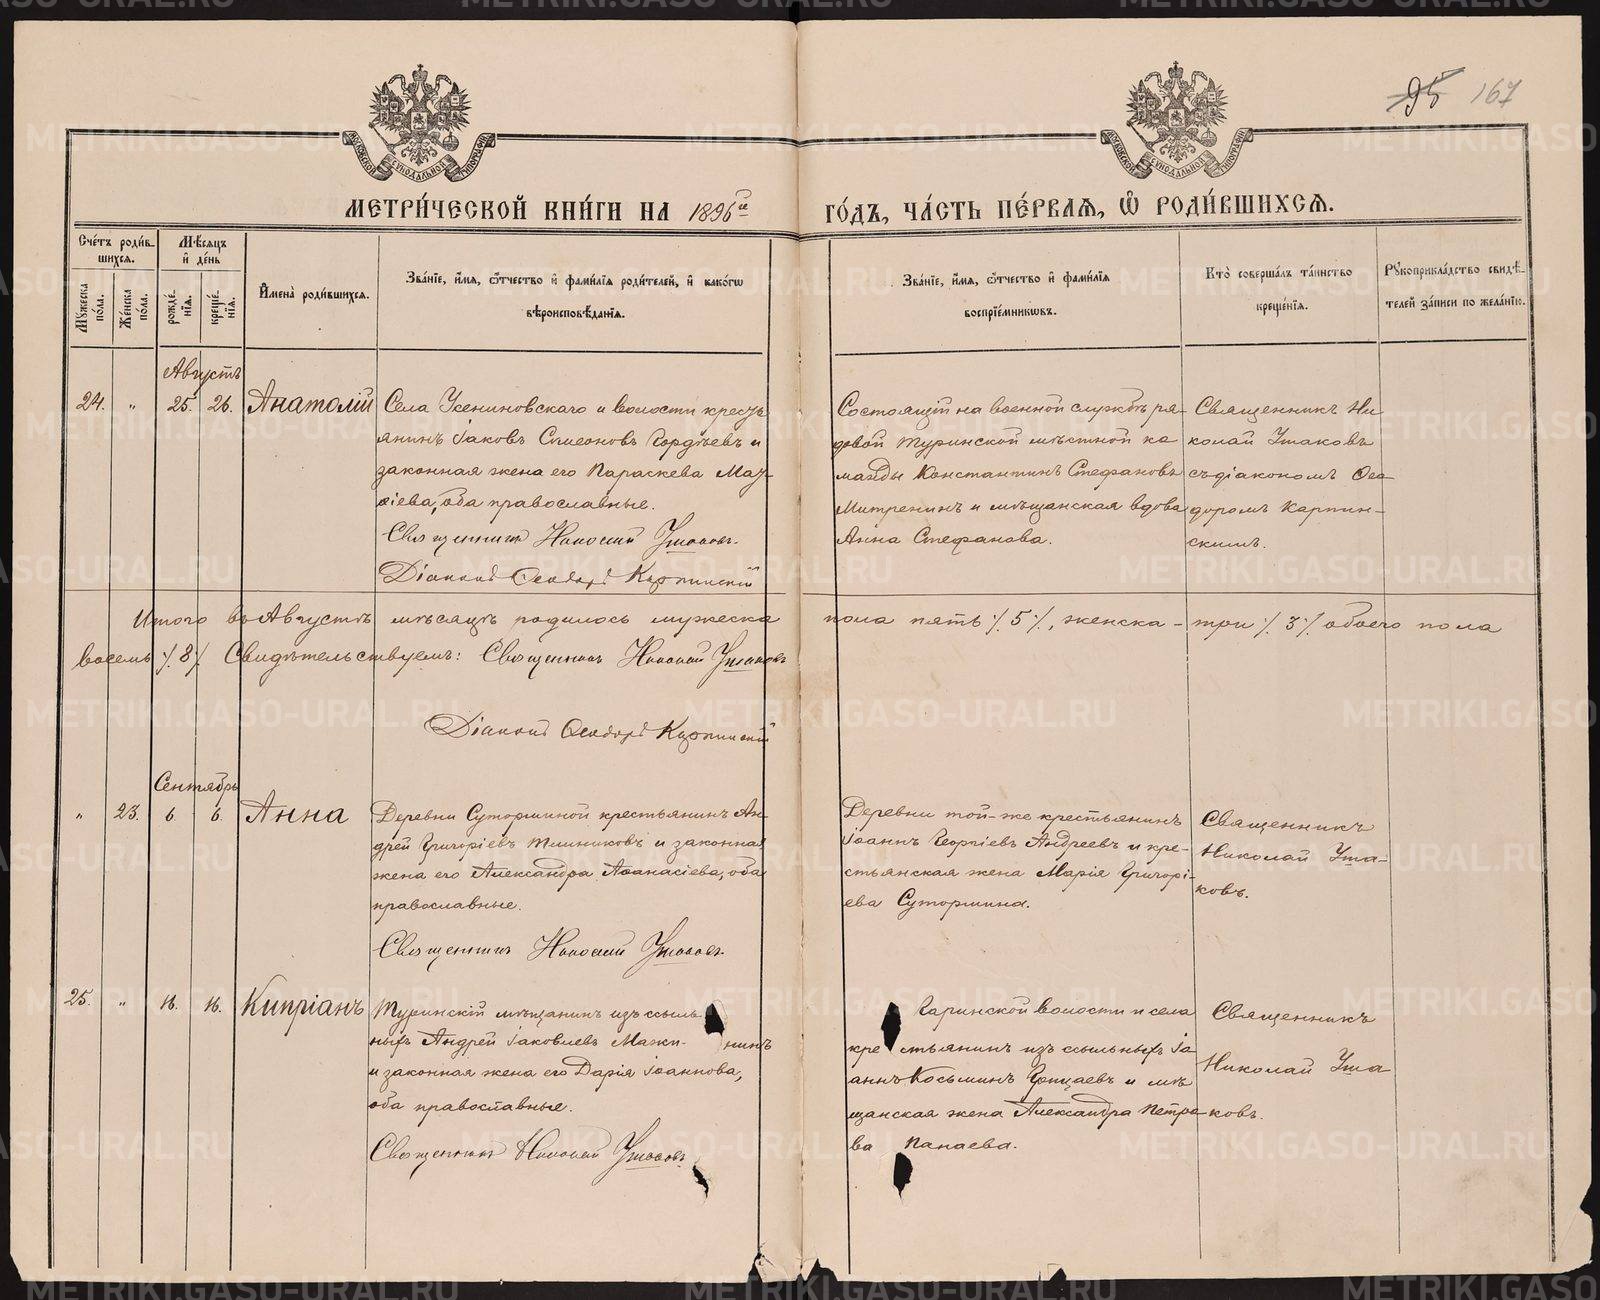 95 167
МОСКОВСКОЙ СѴНОДАЛЬНОЙ ТИПОГРАФІИ
МОСКОВСКОЙ СѴНОДАЛЬНОЙ ТИПОГРАФІИ
МЕТРИ́ЧЕСКОЙ КНИ́ГИ НА 1896й ГО́ДЪ, ЧА́СТЬ ПЕ́РВАѦ, Ѿ РОДИ́ВШИХСѦ.
Сче́тъ роди́в-
шихсѧ.
Мѣ́сѧцъ
и҆ де́нь
Мꙋ́жеска
по́ла.
Же́нска
по́ла.
рожде́-
нїѧ.
креще́-
нїѧ.
И҆мена̀ роди́вшихсѧ.
Зва́нїе, и҆́мѧ, ѻ҆́тчество и҆ фами́лїѧ роди́телей, и҆ како́гѡ
вѣроисповѣ́данїѧ.
Зва́нїе, и҆́мѧ, ѻ҆́тчество и҆ фами́лїѧ
воспрїе́мникѡвъ.
Кто̀ соверша́лъ та́инство
креще́нїѧ.
Рꙋкоприкла́дство свидѣ́-
телей за́писи по жела́нїю.
Августъ
24. " 25. 26. Анатолій
Села Усениновскаго и волости кресть
янинъ Іаковъ Симеоновъ Гордѣевъ и
законная жена его Параскева Мат-
ѳіева, оба православные.
Священникъ Николай Ушаковъ.
Діаконъ Ѳеодоръ Карпинскій
Состоящій на военной службѣ ря-
довой Туринской мѣстной ко
манды Константинъ Стефановъ
Митренинъ и мѣщанская вдова
Анна Стефанова.
Священникъ Ни
колай Ушаковъ
съ діакономъ Ѳео-
доромъ Карпин-
скимъ.
Итого въ Августѣ мѣсяцѣ родилось мужеска пола пять ./. 5 ./., женска - три ./. 3 ./. обоего пола
восемь ./. 8 ./. Свидѣтельствуемъ: Священникъ Николай Ушаковъ
Діаконъ Ѳеодоръ Карпинскій
Сентябрь
" 23. 6 6. Анна
Деревни Суторминой крестьянинъ Ан-
дрей Григоріевъ и законная
жена его Александра Аѳанасіева, оба
православные.
Священникъ Николай Ушаковъ.
Деревни той-же крестьянинъ
Іоаннъ Георгіевъ Андреевъ и кре-
стьянская жена Марія Григорі-
ева Сутормина.
Священникъ
Николай Уша-
ковъ.
25. " 16. 16. Кипріанъ
Туринскій мѣщанинъ изъ ссыль
ныхъ Андрей Іаковлевъ нинъ
и законная жена его Дарія Іоаннова,
оба православные.
Священникъ Николай Ушаковъ.
Гаринской волости и села
крестьянинъ изъ ссыльныхъ Іо
аннъ Косьминъ и мѣ
щанская жена Александра Петро
ва Панаева.
Священникъ
Николай Уша
ковъ.
METRIKI.GASO-URAL.RU